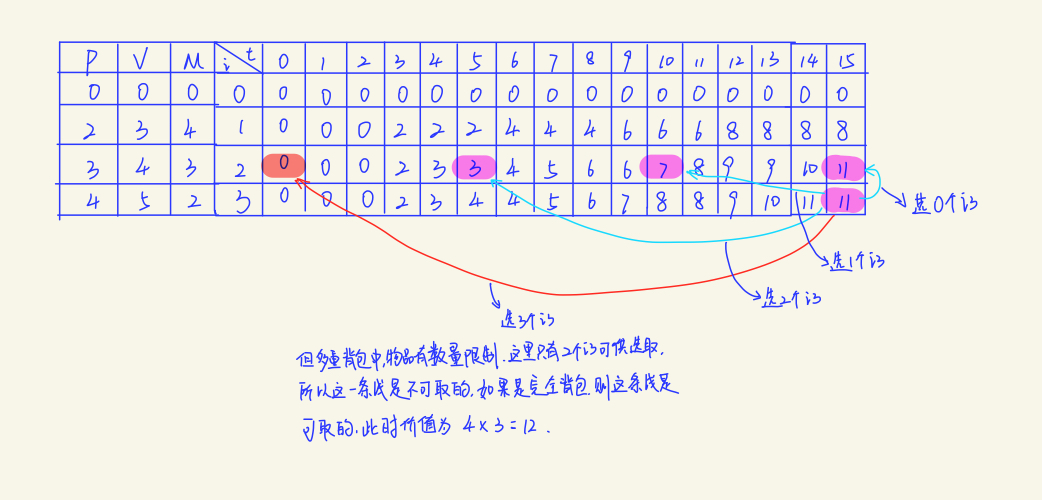 P V M i t 0 1 2 3 4 5 6 7 8 9 10 11 12 13 14 15
0 0 0 0 0 0 0 0 0 0 0 0 0 0 0 0 0 0 0 0
2 3 4 1 0 0 0 2 2 2 4 4 4 6 6 6 8 8 8 8
3 4 3 2 0 0 0 2 3 3 4 5 6 6 7 8 9 9 10 11
4 5 2 3 0 0 0 2 3 4 4 5 6 7 8 8 9 10 11 11
选0个i3
选1个i3
选2个i3
选3个i3
但多重背包中,物品有数量限制.这里只有2个i3可供选取,
所以这一条线是不可取的.如果是完全背包,则这条线是
可取的.此时价值为 4×3=12.